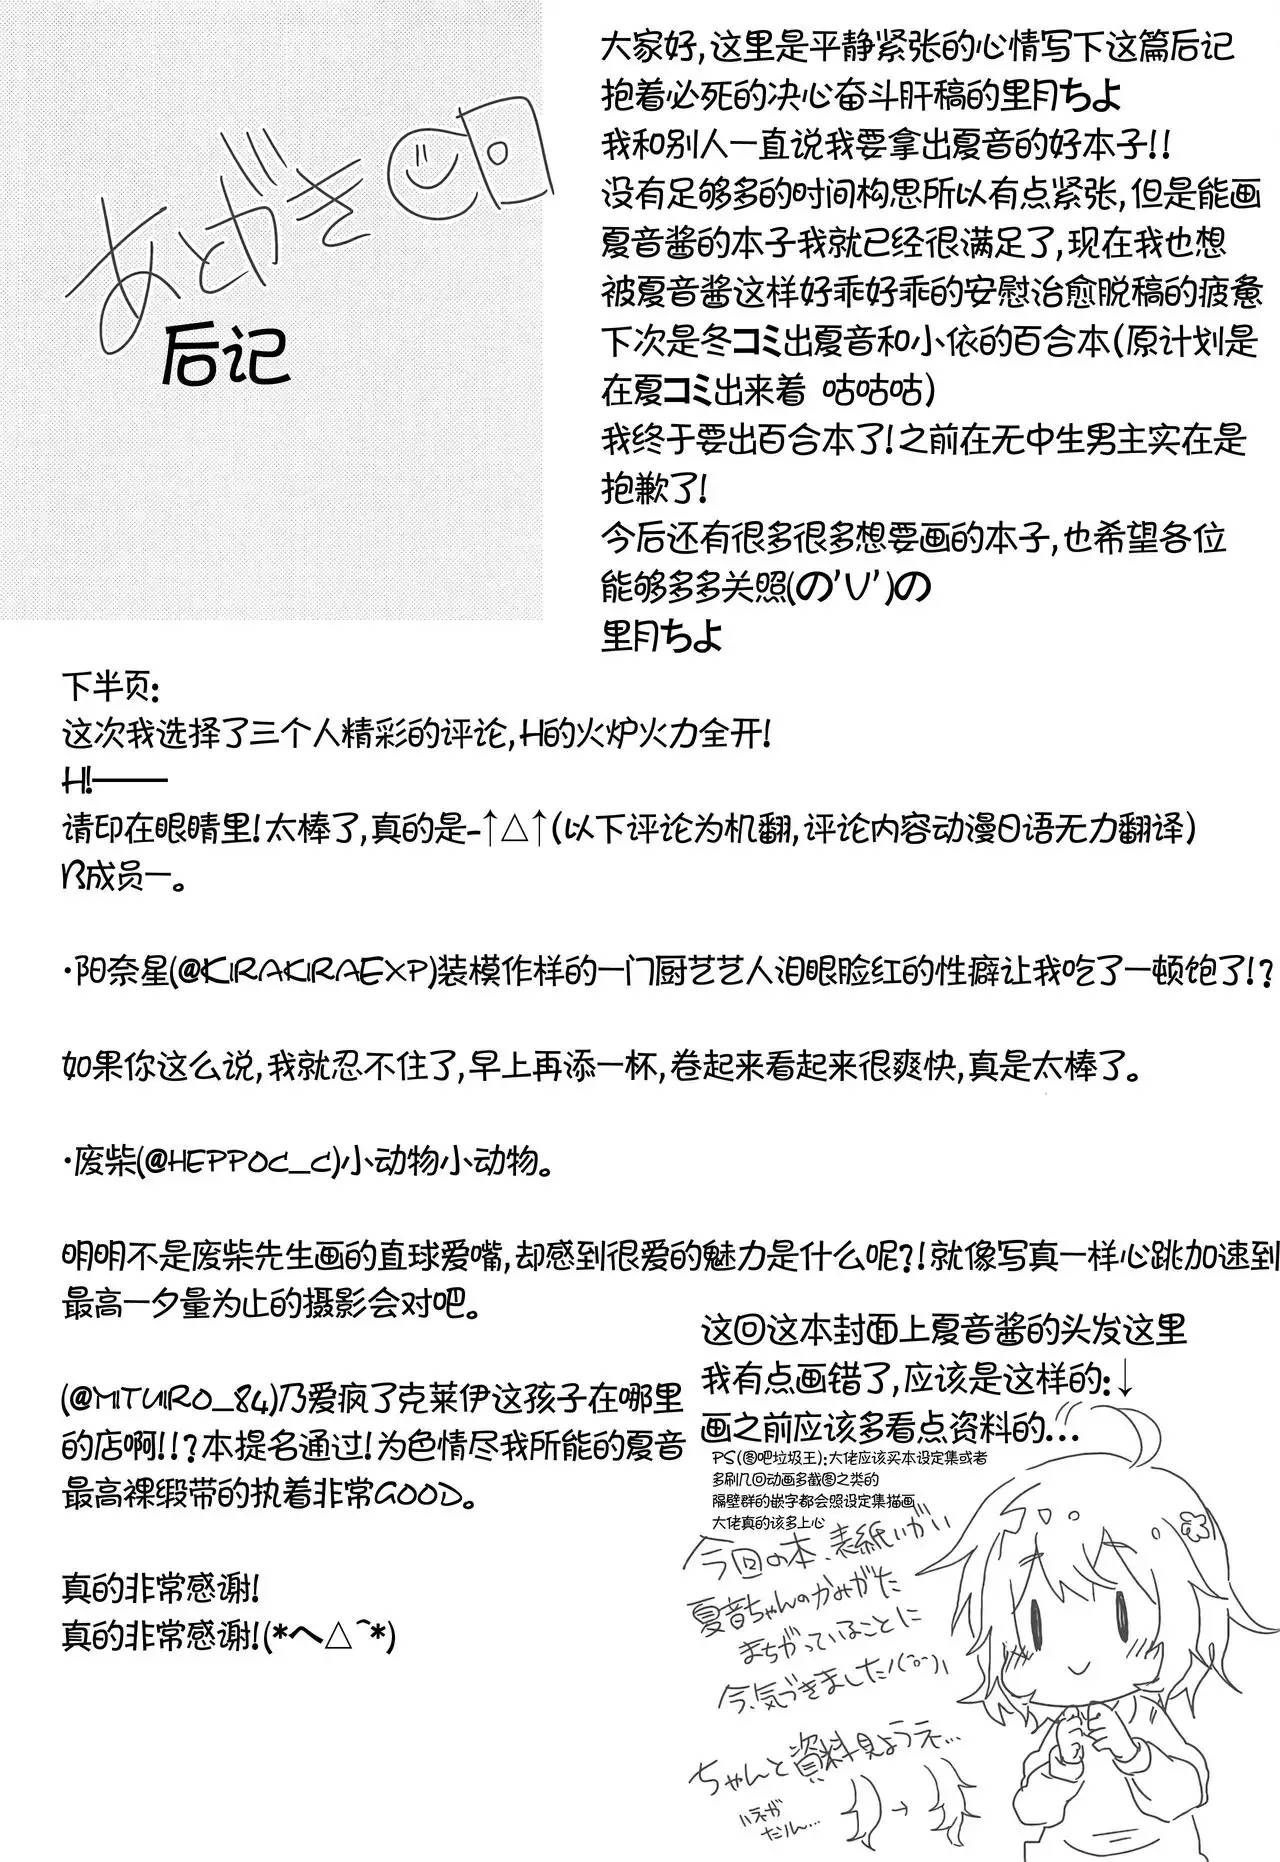 あとがき
后记
大家好,这里是平静紧张的心情写下这篇后记
抱着必死的决心奋斗肝稿的里月ちよ
我和别人一直说我要拿出夏音的好本子!!
没有足够多的时间构思所以有点紧张,但是能画
夏音酱的本子我就已经很满足了,现在我也想
被夏音酱这样好乖好乖的安慰治愈脱稿的疲惫
下次是冬コミ出夏音和小依的百合本(原计划是
在夏コミ出来着 咕咕咕)
我终于要出百合本了!之前在无中生男主实在是
抱歉了!
今后还有很多很多想要画的本子,也希望各位
能够多多关照(の'V')の
里月ちよ
下半页:
这次我选择了三个人精彩的评论,H的火炉火力全开!
H!——
请印在眼睛里!太棒了,真的是-↑△↑(以下评论为机翻,评论内容动漫日语无力翻译)
B成员一。
·阳奈星(@KIRAKIRAEXP)装模作样的一门厨艺艺人泪眼脸红的性癖让我吃了一顿饱了!?
如果你这么说,我就忍不住了,早上再添一杯,卷起来看起来很爽快,真是太棒了。
·废柴(@HEPPOC_C)小动物小动物。
明明不是废柴先生画的直球爱嘴,却感到很爱的魅力是什么呢?!就像写真一样心跳加速到
最高一夕量为止的摄影会对吧。
(@MITUIRO_84)乃爱疯了克莱伊这孩子在哪里
的店啊!!?本提名通过!为色情尽我所能的夏音
最高裸缎带的执着非常GOOD。
真的非常感谢!
真的非常感谢!(*へ△^*)
这回这本封面上夏音酱的头发这里
我有点画错了,应该是这样的:↓
画之前应该多看点资料的...
PS(图吧垃圾王):大佬应该买本设定集或者
多刷几回动画多截图之类的
隔壁群的嵌字都会照设定集描画
大佬真的该多上心
今回の本、表紙いがい
夏音ちゃんのかみがた
まちがっていることに
今、気づきました
ちゃんと資料見ようネ...